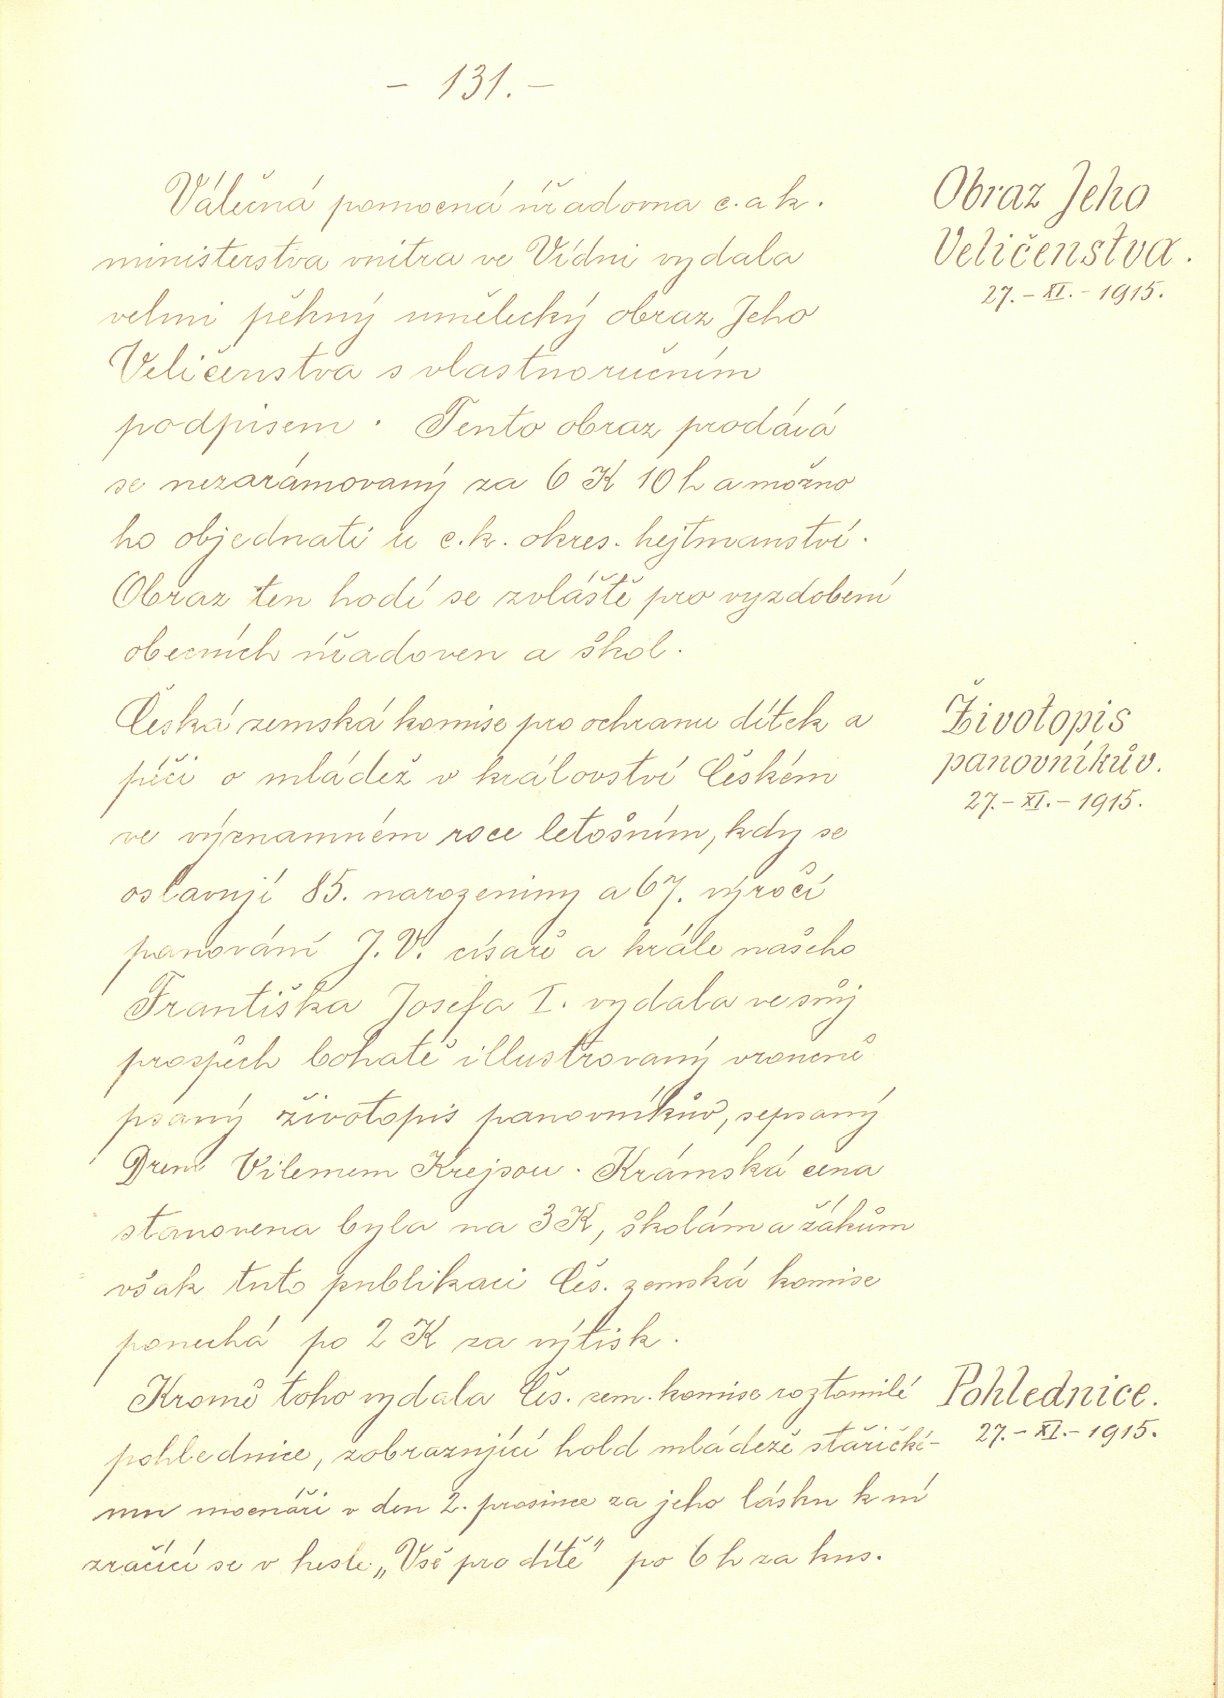 - 131. -
Obraz Jeho
Veličenstva.
27. - XI. - 1915.
Válečná pomocná úřadovna c. a k.
ministerstva vnitra ve Vídni vydala
velmi pěkný umělecký obraz Jeho
Veličenstva s vlastnoručním
podpisem. Tento obraz prodává
se nezarámovaný za 6 K 10 h a možno
ho objednati u c. k. okres. hejtmanství.
Obraz ten hodí se zvláště pro vyzdobení
obecních úřadoven a škol.
Životopis
panovníkův.
27. - XI. - 1915.
Česká zemská komise pro ochranu dítek a
péči o mládež v království Českém
ve významném roce letošním, kdy se
oslavují 85. narozeniny a 67. výročí
panování J. V. císaře a krále našeho
Františka Josefa I. vydala ve svůj
prospěch bohatě illustrovaný vroucně
psaný životopis panovníkův, sepsaný
Drem Vilemem Krejsou. Krámská cena
stanovena byla na 3 K, školám a žákům
však tuto publikaci Čes. zemská komise
ponechá po 2 K za výtisk.
Pohlednice.
27. - XI. - 1915.
Kromě toho vydala Čes. zem. komise roztomilé
pohlednice, zobrazující hold mládeže stařičké-
mu mocnáři v den 2. prosince za jeho lásku k ní
zračící se v hesle „Vše pro dítě" po 6 h za kus.